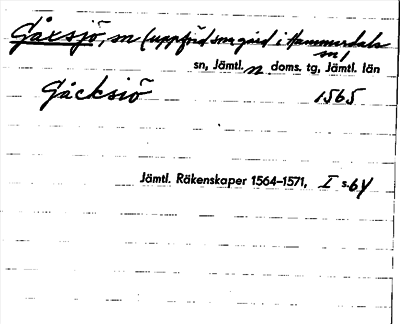 Gåxsjö, sn (uppförd som gård i Hammerdals sn)
sn, Jämtl. n doms. tg, Jämtl. län
Gåcksiö 1565
Jämtl. Räkenskaper 1564–1571, I s. 64